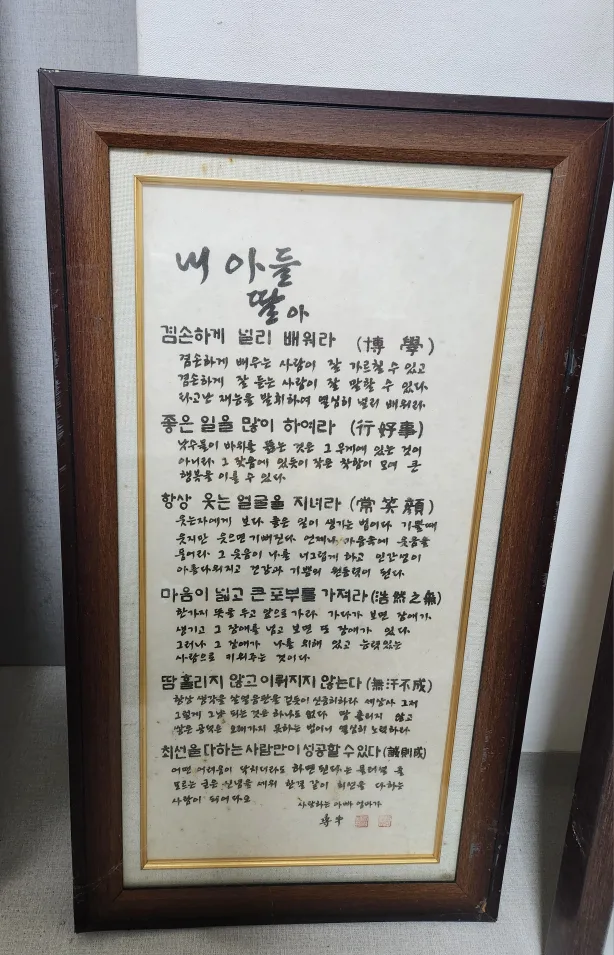 내 아들
딸아
겸손하게 널리 배워라 (博學)
겸손하게 배우는 사람이 잘 가르칠 수 있고
겸손하게 잘 듣는 사람이 잘 말할 수 있다
타고난 재능을 발휘하여 열심히 널리 배워라
좋은 일을 많이 하여라 (行好事)
낙숫물이 바위를 뚫는 것은 그 무게에 있는 것이
아니라 그 잦음에 있듯이 작은 착함이 모여 큰
행복을 이룰 수 있다.
항상 웃는 얼굴을 지녀라 (常笑顔)
웃는자에게 보다 좋은 일이 생기는 법이다 기쁠때
웃지만 웃으면 기뻐진다 언제나 마음속에 웃음을
품어라 그 웃음이 나를 너그럽게 하고 인간성이
아름다워지고 건강과 기쁨의 원동력이 된다.
마음이 넓고 큰 포부를 가져라 (浩然之氣)
한가지 뜻을 두고 앞으로 가라 가다가 보면 장애가
생기고 그 장애를 넘고 보면 또 장애가 있다
그러나 그 장애가 나를 위해 있고 능력있는
사람으로 키워주는 것이다.
땀 흘리지 않고 이뤄지지 않는다 (無汗不成)
항상 생각을 살얼음판을 걷듯이 신중히하라 세상사 그저
그렇게 그냥 되는 것은 하나도 없다 땀 흘리지 않고
쌓은 공덕은 오래가지 못하는 법이니 열심히 노력하라
최선을 다하는 사람만이 성공할 수 있다 (誠則成)
어떤 어려움이 닥치더라도 하면 된다는 물러설 줄
모르는 굳은 신념을 세워 한결 같이 최선을 다하는
사람이 되어다오
사랑하는 아빠 엄마가